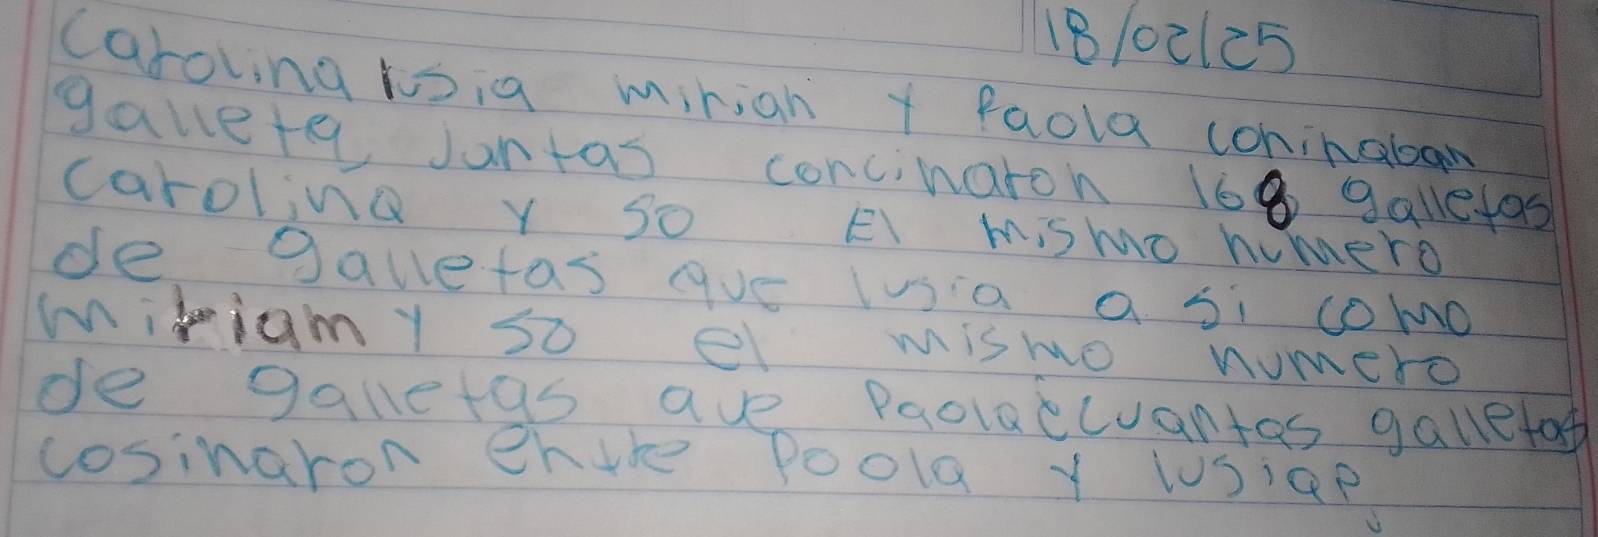 18/02/25
Carolina lusia mirian y Paola coninaban
galleta Juntas concinaron 168 galletas
Carolina y so El mismo numero
de galletas que lusia a si como
miriam y so el mismo numero
de galletas que Paola¿cuantas galletas
cosinaron entre Poola y lusia?